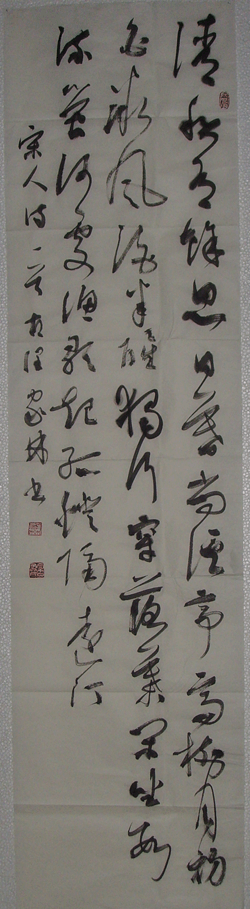 清秋有餘思日暮尚溪亭高樹月初
白微風酒半醒獨行穿落葉閒坐數
流螢何處漁歌起孤燈隔遠汀
宋人诗一首 家林书